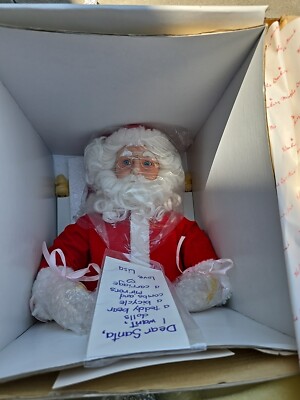 Dear Santa,
I want,
dolls
a teddy bear
a bicycle
combs and
mirrors
a carriage ♡
Love,
Lisa